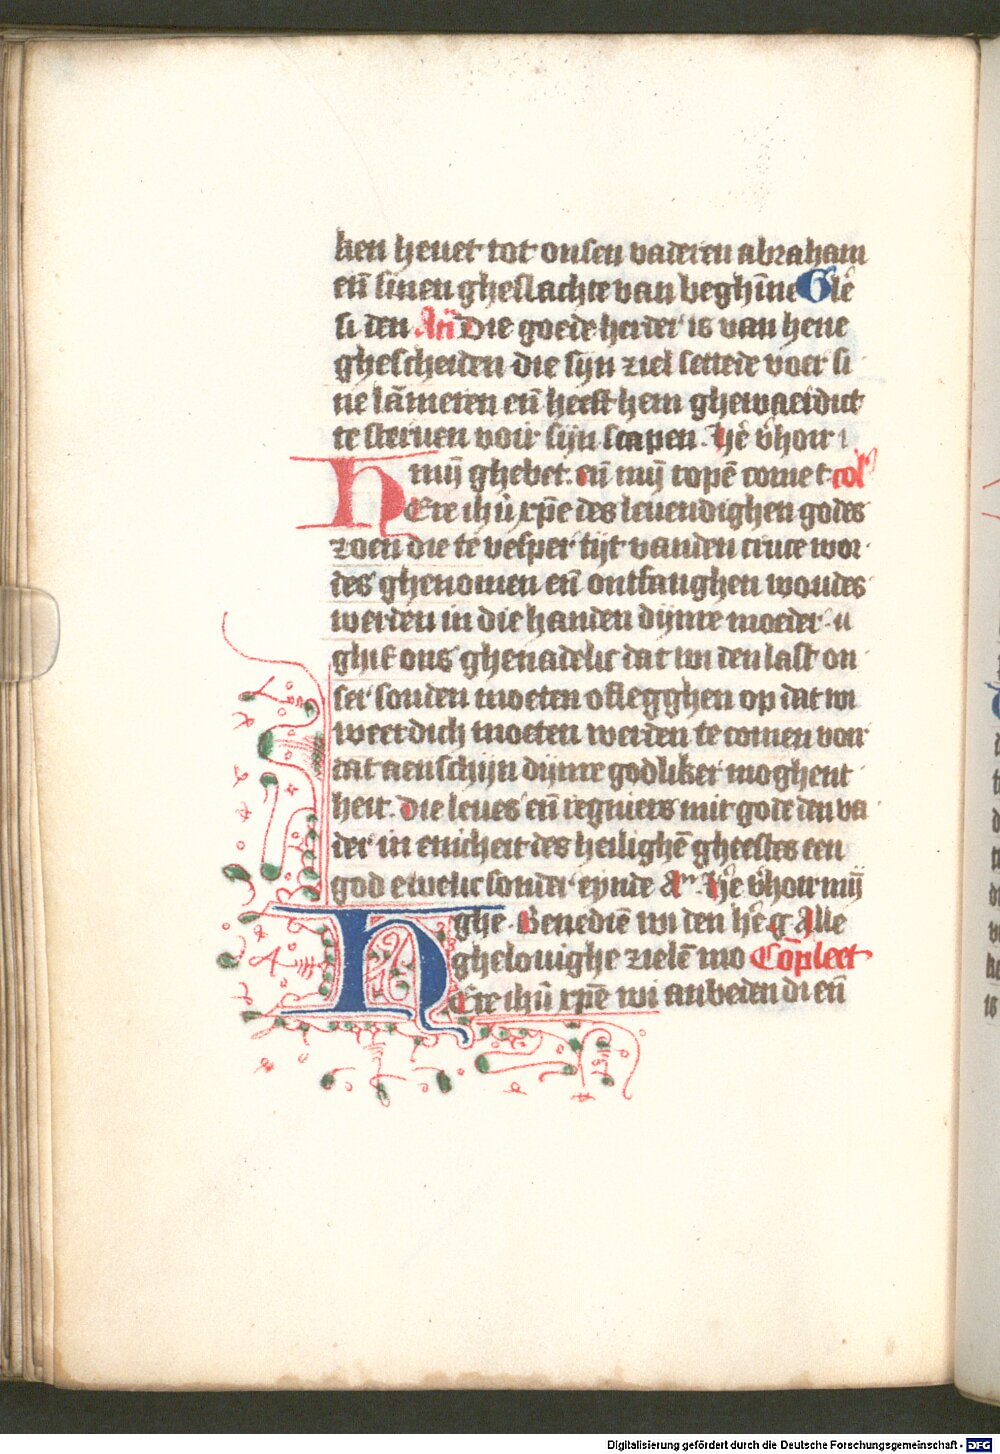 ken heuet tot onsen vaderen abraham
en̄ sinen gheslachte van beghīne Glē
si den An̄ Die goede herder is van hene
ghescheiden die sijn ziel settede voer si
ne lām̄eren en̄ heeft hem ghewaerdict
te steruen voir sijn scapen. He v̄hoir
mijn ghebet. en̄ mijn ropē come t. col̄
HEre ihū xp̄e des leuendighen godes
zoen die te vesper tijt vanden cruce wor
des ghenomen en̄ ontfanghen woudes
werden in die handen dijnre moeder
ghif ons ghenadelic dat wi den last on
ser sonden moeten oflegghen op dat wi
weerdich moeten werden te comen voir
dat aenschijn dijnre godliker moghent
heit. Die leues en̄ regniers mit gode den va
der in enicheit des heilighē gheestes een
god ewelic sonder eynde A. He v̄hoir mij
ghe. Benediē wi den hē. g. Alle
ghelouighe zielē mo Cōpleet
HEre ihū xp̄e wi anbeden di en̄
Digitalisierung gefördert durch die Deutsche Forschungsgemeinschaft - DFG